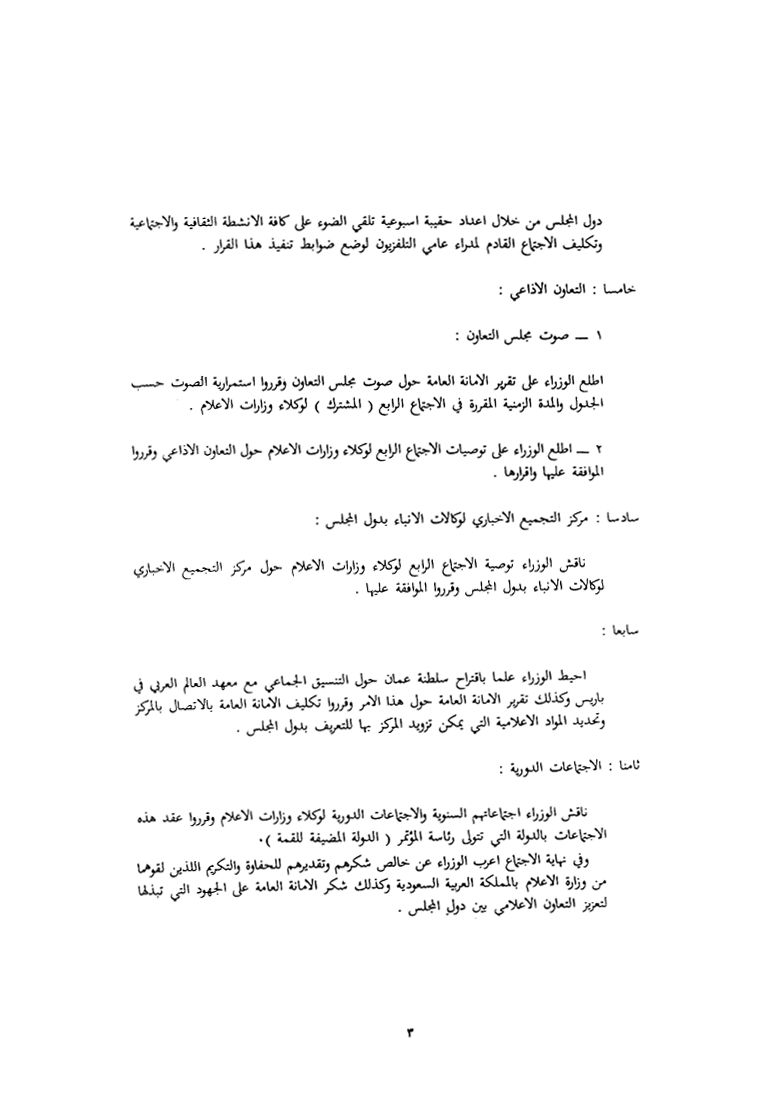 دول المجلس من خلال اعداد حقيبة اسبوعية تلقي الضوء على كافة الانشطة الثقافية والاجتماعية
وتكليف الاجتماع القادم لمدراء عامي التلفزيون لوضع ضوابط تنفيذ هذا القرار .
خامسا : التعاون الاذاعي :
١ ـــ صوت مجلس التعاون :
اطلع الوزراء على تقرير الامانة العامة حول صوت مجلس التعاون وقرروا استمرارية الصوت حسب
الجدول والمدة الزمنية المقررة في الاجتماع الرابع ( المشترك ) لوكلاء وزارات الاعلام .
٢ ـــ اطلع الوزراء على توصيات الاجتماع الرابع لوكلاء وزارات الاعلام حول التعاون الاذاعي وقرروا
الموافقة عليها واقرارها .
سادسا : مركز التجميع الاخباري لوكالات الانباء بدول المجلس :
ناقش الوزراء توصية الاجتماع الرابع لوكلاء وزارات الاعلام حول مركز التجميع الاخباري
لوكالات الانباء بدول المجلس وقرروا الموافقة عليها .
سابعا :
احيط الوزراء علما باقتراح سلطنة عمان حول التنسيق الجماعي مع معهد العالم العربي في
باريس وكذلك تقرير الامانة العامة حول هذا الامر وقرروا تكليف الامانة العامة بالاتصال بالمركز
وتحديد المواد الاعلامية التي يمكن تزويد المركز بها للتعريف بدول المجلس .
ثامنا : الاجتماعات الدورية :
ناقش الوزراء اجتماعاتهم السنوية والاجتماعات الدورية لوكلاء وزارات الاعلام وقرروا عقد هذه
الاجتماعات بالدولة التي تتولى رئاسة المؤتمر ( الدولة المضيفة للقمة ) .
وفي نهاية الاجتماع اعرب الوزراء عن خالص شكرهم وتقديرهم للحفاوة والتكريم اللذين لقوهما
من وزارة الاعلام بالمملكة العربية السعودية وكذلك شكر الامانة العامة على الجهود التي تبذلها
لتعزيز التعاون الاعلامي بين دول المجلس .
٣